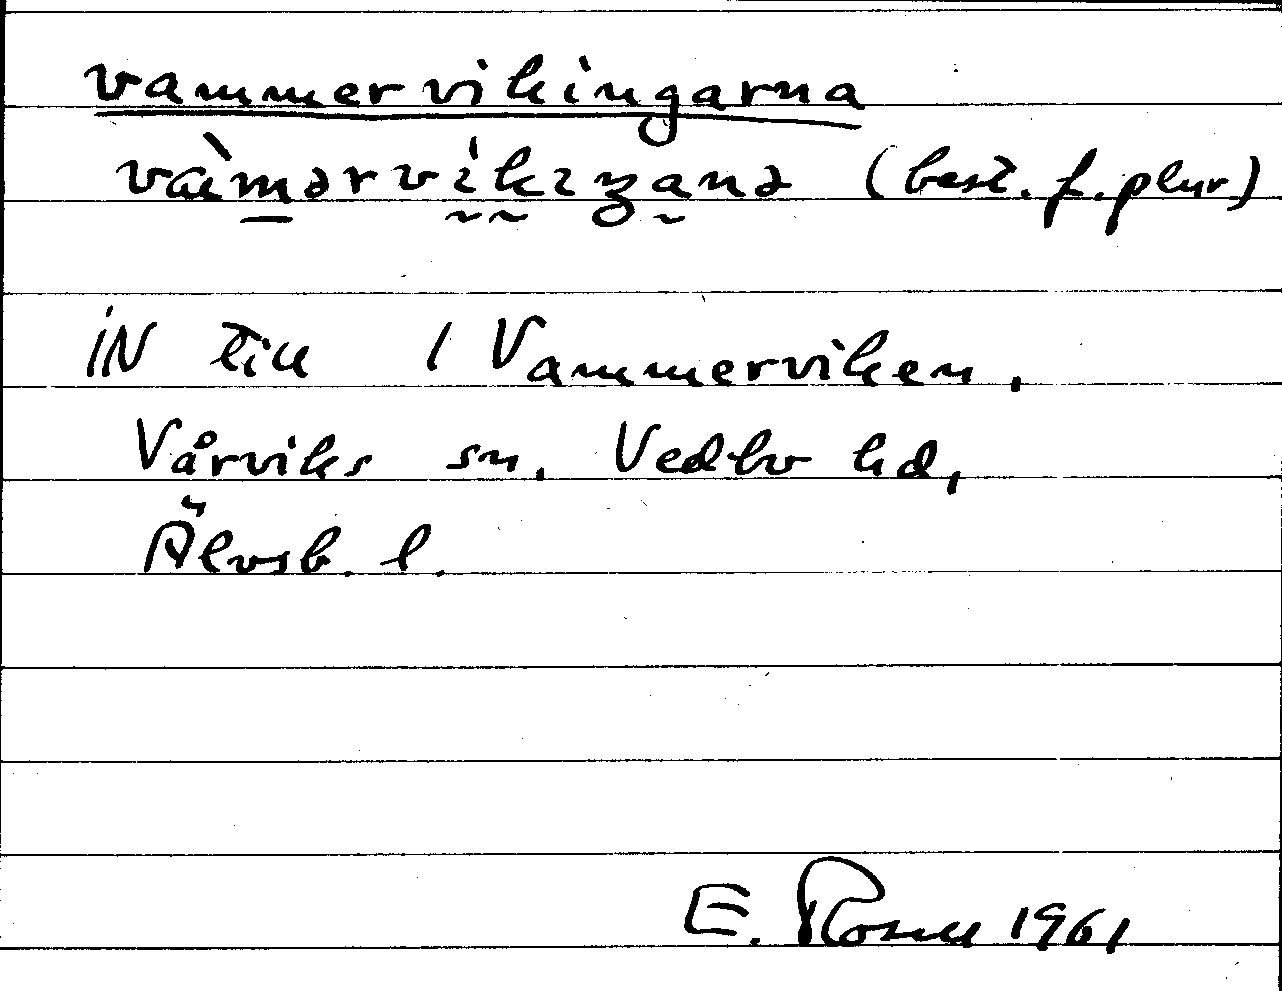 vammervikingarna
(best. f. plur)
IN till / Vammerviken,
Vårviks sn, Vedbo hd,
Älvsb. l.
E. Rosell 1961